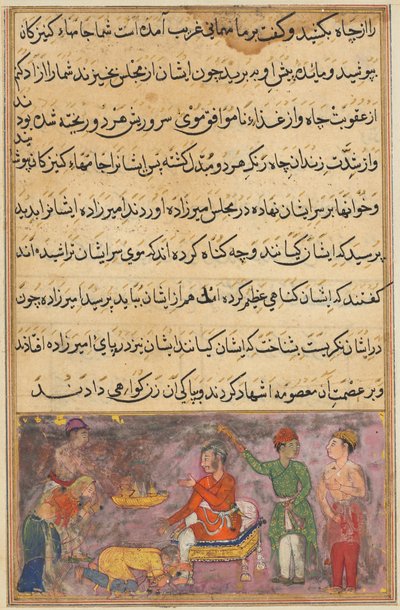 را از چاه بکشید و کفت بر ما مهمانی غریب آمده است شما جامهاء کنیزکان
بپوشید و مایده پیش او ببرید چون ایشان از مجلس بخیزند شما را ازاد کنم
از عقوبت چاه و از غذاء ناموافق موی سر و ریش هر دو ریخته شده بود
و از شدت زندان چاه رنک هر دو مبدل کشته پس ایشانرا جامهاء کنیزکان پوشانیدند
و خوانها بر سر ایشان نهاده در مجلس امیرزاده اوردند امیرزاده ایشانرا بدید
پرسید که ایشان کیانند و چه کناه کرده اند که موی سر ایشان تراشیده اند
کفتند که ایشان کناهی عظیم کرده اند هم از ایشان بباید پرسید امیرزاده چون
در ایشان نکریست بشناخت که ایشان کیانند ایشان نیز در پای امیرزاده افتادند
و بر عصمت آن معصومه اشهاد کردند و بپاکی آن زن کواهی دادند